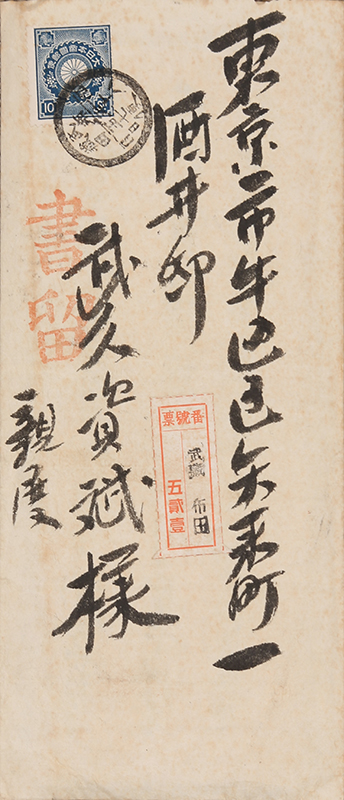 東京市牛込区矢来町一
酒井邸
武久資斌様
親展
書留
番號票
武藏 布田
五貳壹
大日本帝國郵便
10